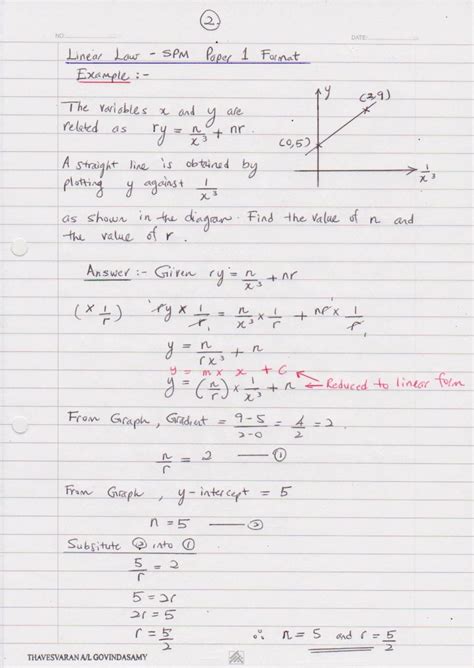 2
NO.
DATE:
Linear Law - SPM Paper 1 Format
Example :-
The variables x and y are
related as ry = n/x³ + nr.
A straight line is obtained by
plotting y against 1/x³
as shown in the diagram. Find the value of n and
the value of r.
y
(2,9)
(0,5)
1/x³
Answer :- Given ry = n/x³ + nr
(× 1/r) ry × 1/r = n/x³ × 1/r + nr × 1/r
y = n/rx³ + n
y = m × x + c
y = (n/r) × 1/x³ + n ← Reduced to linear form
From Graph, Gradient = 9-5/2-0 = 4/2 = 2.
n/r = 2 — ①
From Graph, y-intercept = 5
n = 5 — ②
Subsitute ② into ①
5/r = 2
5 = 2r
2r = 5
r = 5/2
∴ n = 5 and r = 5/2
THAVESVARAN A/L GOVINDASAMY